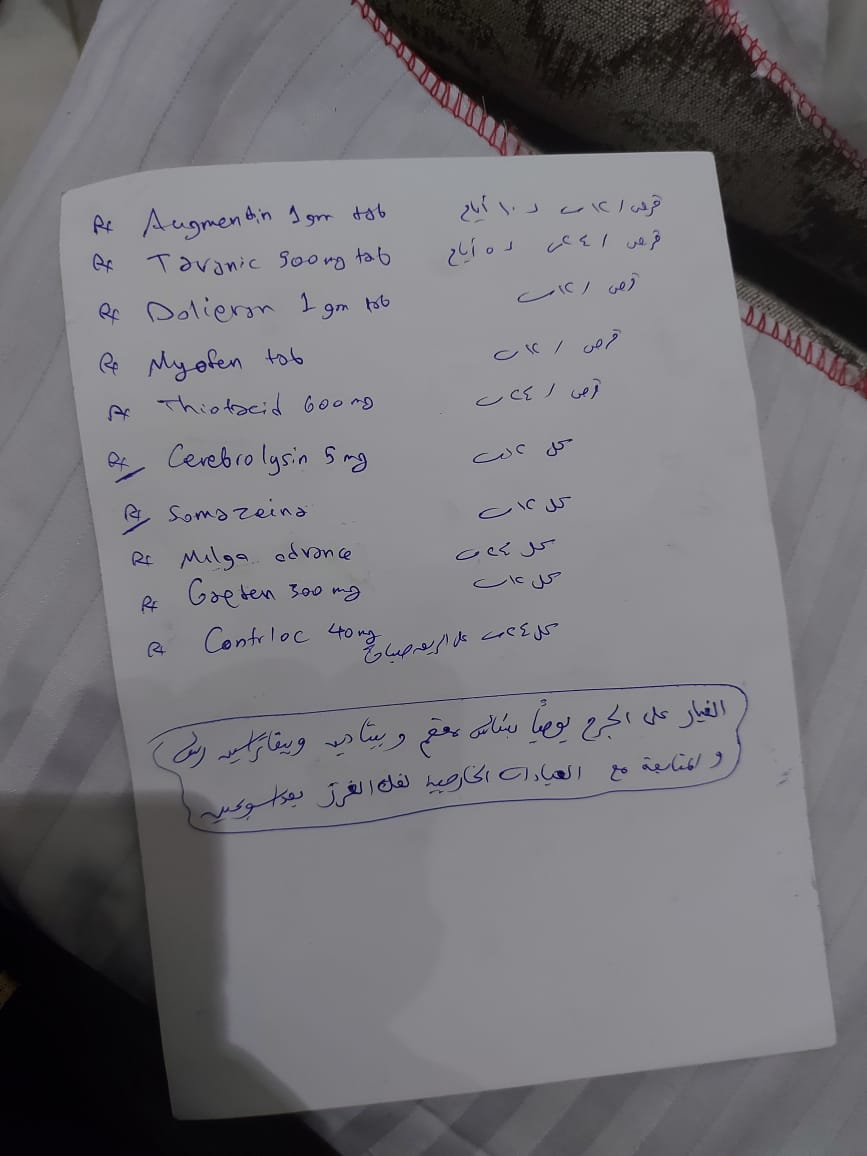 Rx Augmentin 1 gm tab قرص / ١٢ س لـ ١٠ أيام
Rx Tavanic 500 mg tab قرص / ٢٤ س لـ ٥ أيام
Rx Dolieran 1 gm tab قرص / ١٢ س
Rx Myofen tab قرص / ١٢ س
Rx Thiotacid 600 mg قرص / ٢٤ س
Rx Cerebrolysin 5 mg كل س
Rx Somazeina كل ١٢ س
Rx Milga advance كل ٢٤ س
Rx GaPten 300 mg كل ١٢ س
Rx Contrloc 40 mg كل ٢٤ س على الريق صباحاً
الغيار على الجرح يومياً بشاش معقم و بيتادين
والمتابعة مع العيادات الخارجية لفك الغرز بعد اسبوعين